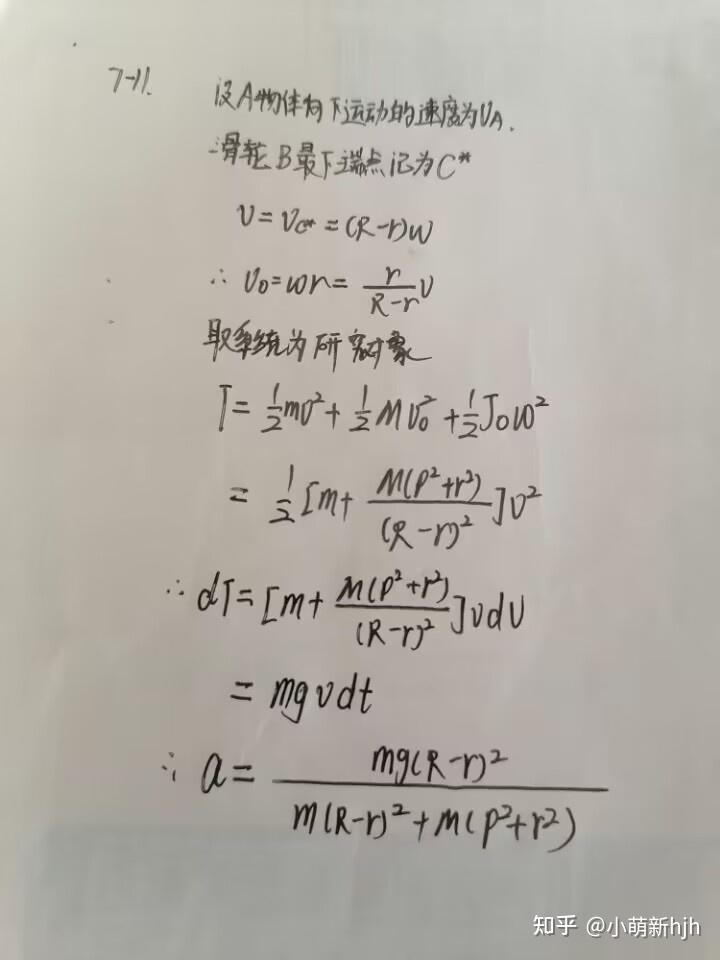 7-11. 设A物体向下运动的速度为υA.
滑轮B最下端点记为C*
υ=υC*=(R-r)ω
∴ υ0=ωr=r/(R-r)υ
取系统为研究对象
T=1/2mυ²+1/2Mυ0²+1/2J0ω²
=1/2[m+M(ρ²+r²)/(R-r)²]υ²
∴ dT=[m+M(ρ²+r²)/(R-r)²]υdυ
=mgυdt
∴ a=mg(R-r)²/m(R-r)²+M(ρ²+r²)
知乎 @小萌新hjh